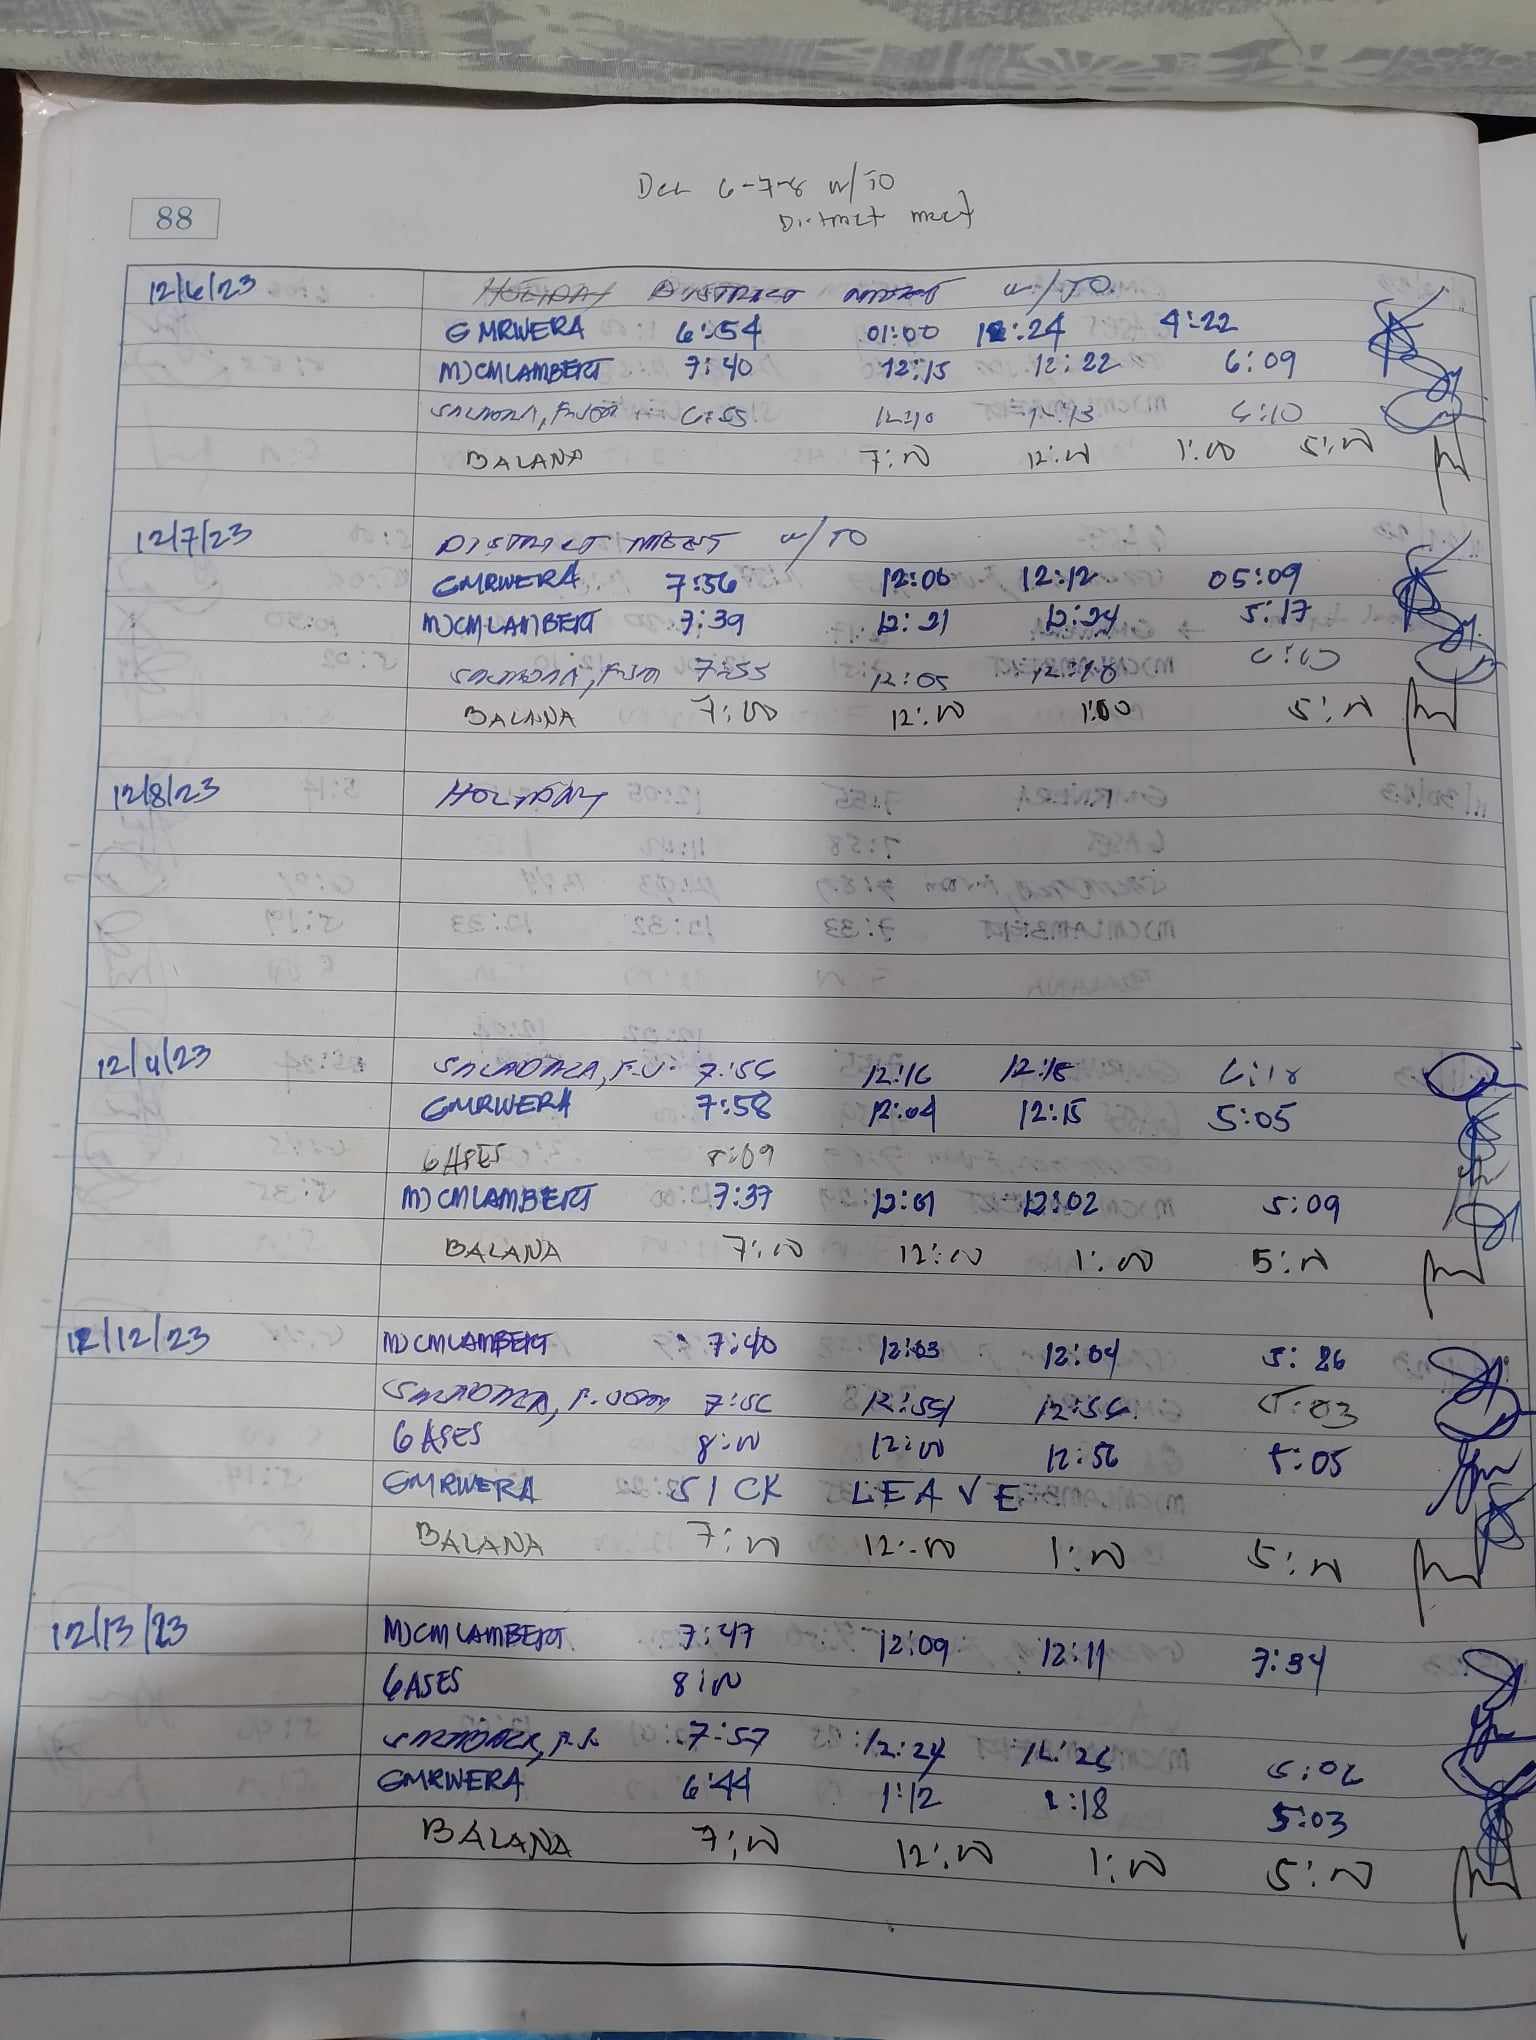 Dec 6-7-8 w/ TO
88 District meet
12/6/23 HOLIDAY DISTRICT MEET w/ TO.
GMRIVERA 6:54 01:00 12:24 4:22
MJCMLAMBERT 7:40 12:15 12:22 6:09
6:55 12:10 12:13 6:10
BALANA 7:00 12:00 1:00 5:00
12/7/23 DISTRICT MEET w/ TO
GMRIVERA 7:56 12:06 12:12 05:09
MJCMLAMBERT 7:39 12:21 12:24 5:17
7:55 12:05 12:18
BALANA 7:00 12:00 1:00 5:00
12/8/23 HOLIDAY
12/11/23 7:56 12:16 12:18 6:18
GMRIVERA 7:58 12:04 12:15 5:05
GASES 8:09
MJCMLAMBERT 7:37 12:01 12:02 5:09
BALANA 7:00 12:00 1:00 5:00
12/12/23 MJCMLAMBERT 7:40 12:03 12:04 5:26
7:56 12:54 12:56 5:03
GASES 8:00 12:00 12:56 5:05
GMRIVERA SICK LEAVE
BALANA 7:00 12:00 1:00 5:00
12/13/23 MJCMLAMBERT 7:47 12:09 12:11 7:34
GASES 8:00
7:57 12:24 12:26 5:02
GMRIVERA 6:44 1:12 1:18 5:03
BALANA 7:00 12:00 1:00 5:00